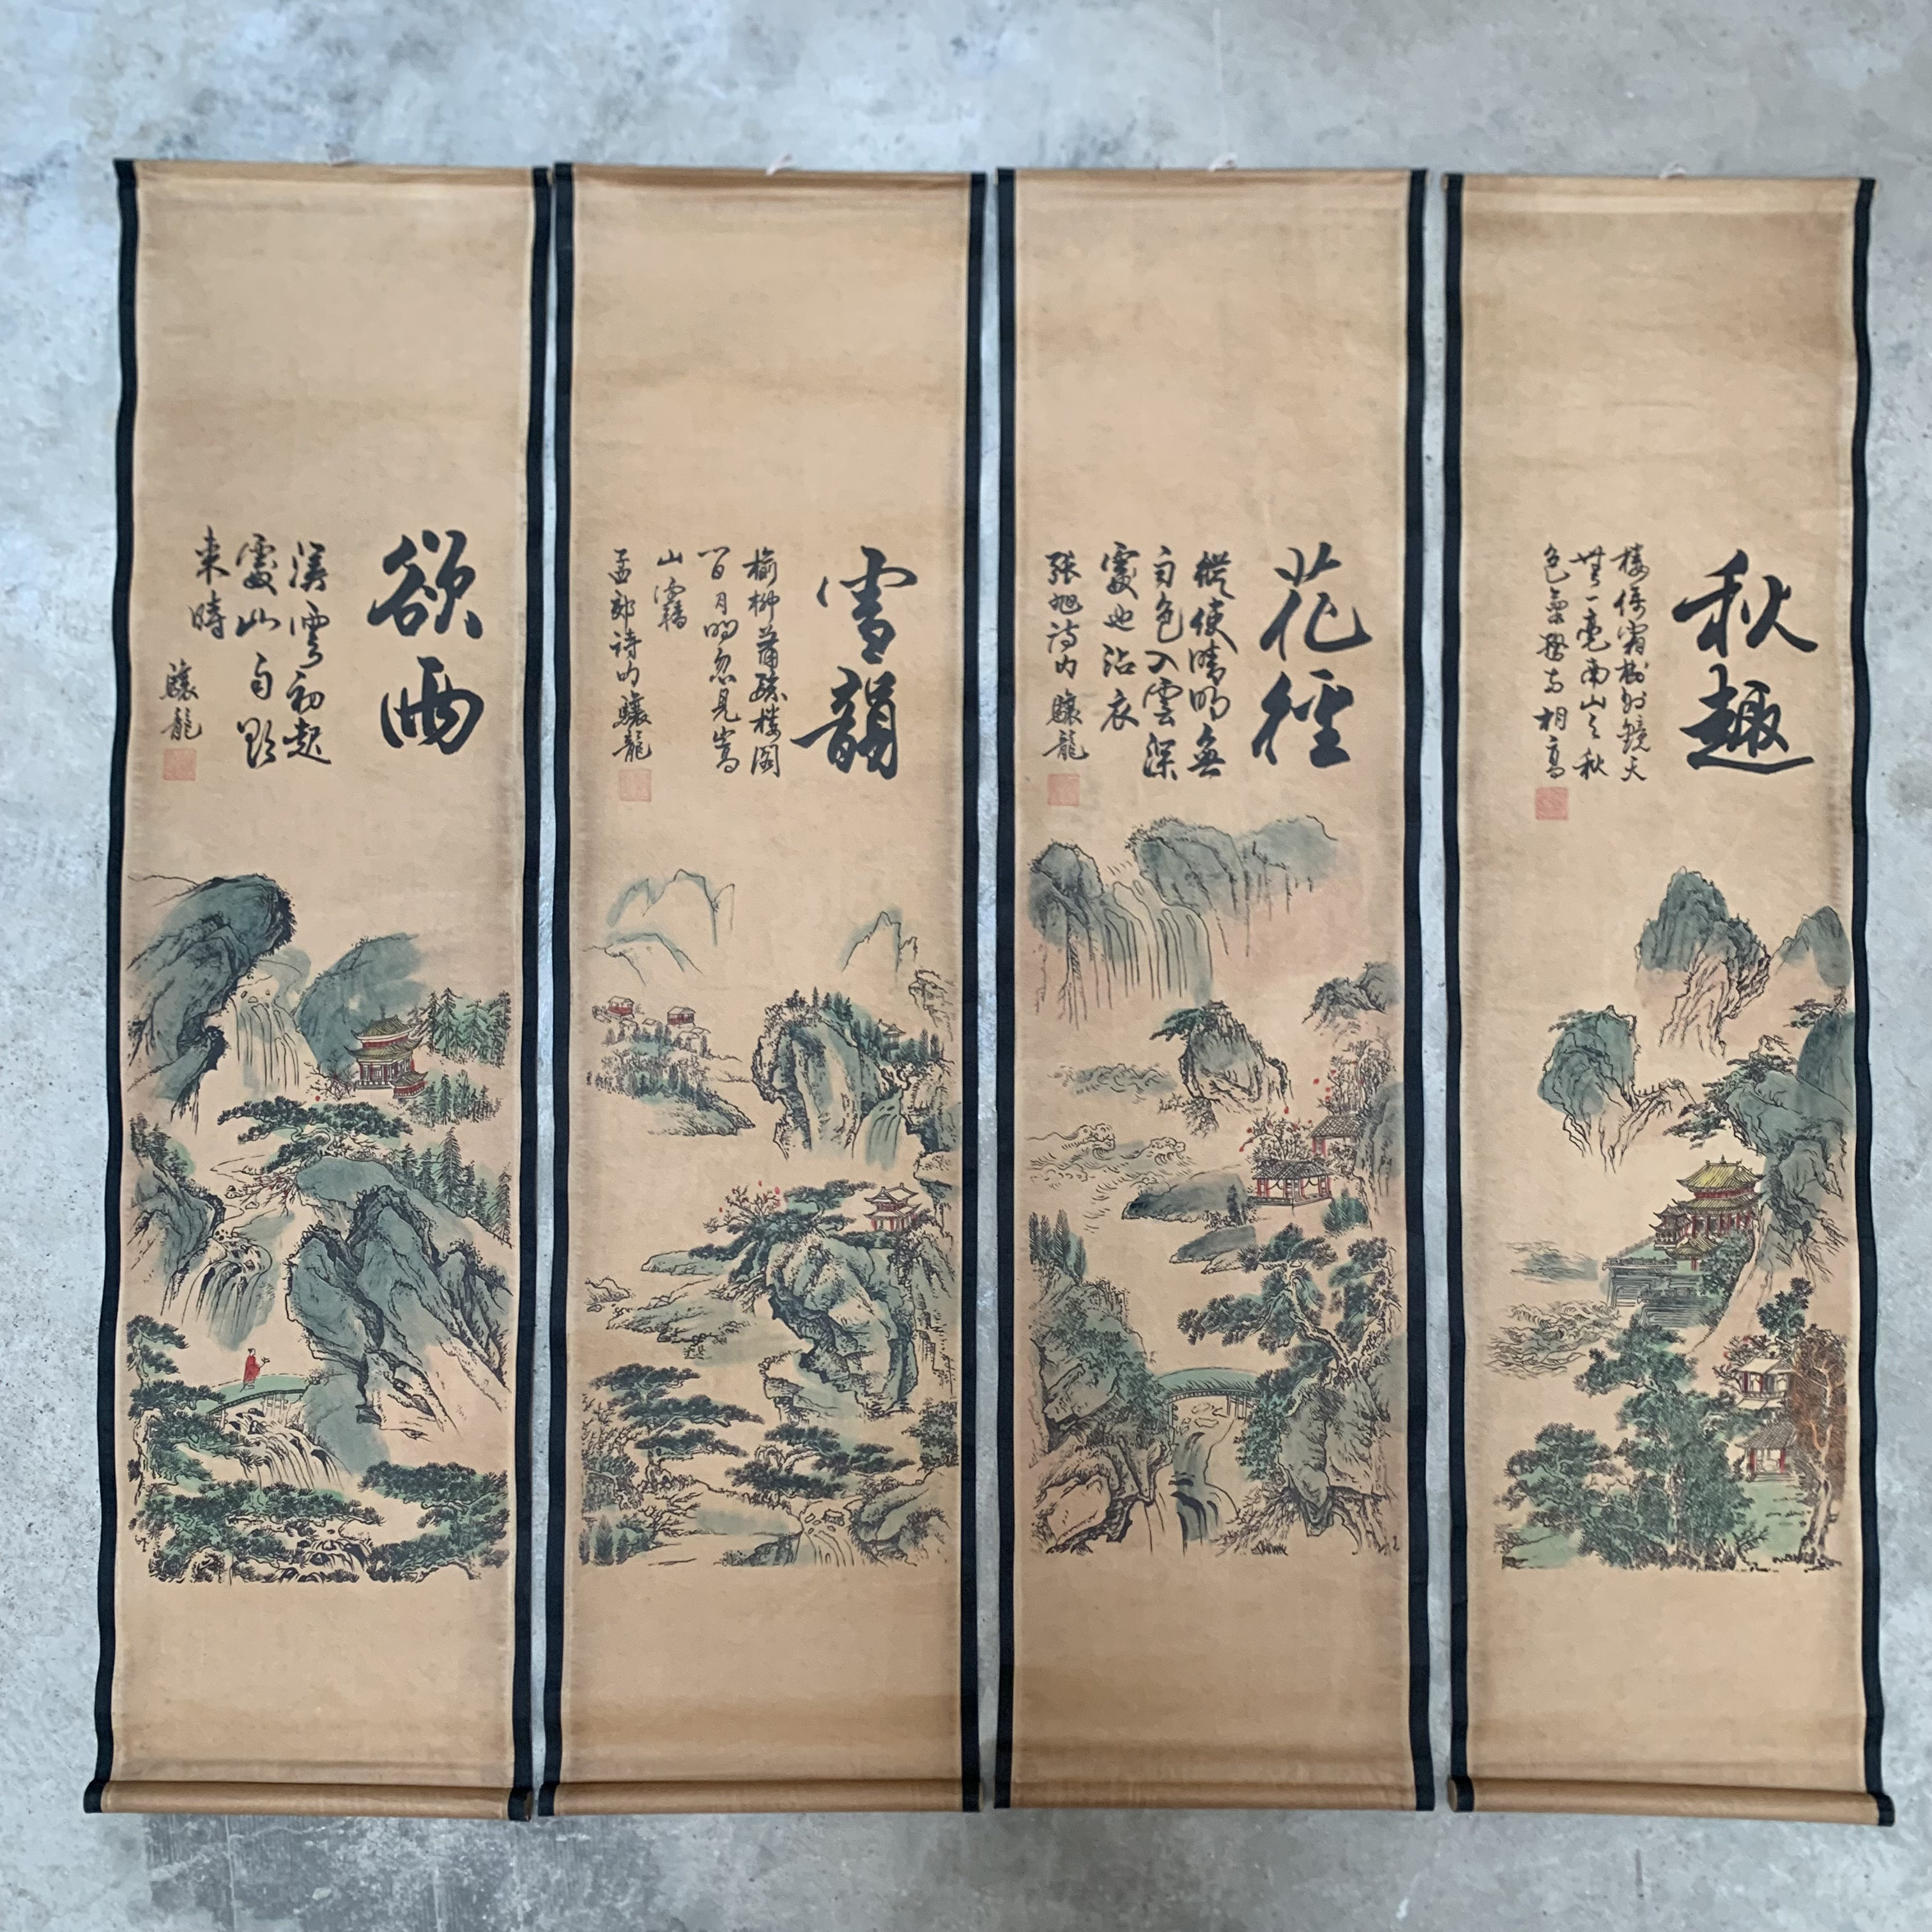 秋趣
樓倚霜樹外鏡天
無一毫南山与秋
色氣勢兩相高
花徑
縱使晴明無
雨色入雲深
處也沾衣
張旭詩句 驤龍
雪韻
榆柳蕭疏樓閣
閒月明忽見嵩
山霽
孟郊詩句 驤龍
欲雨
溪雲初起
處山雨欲
來時
驤龍